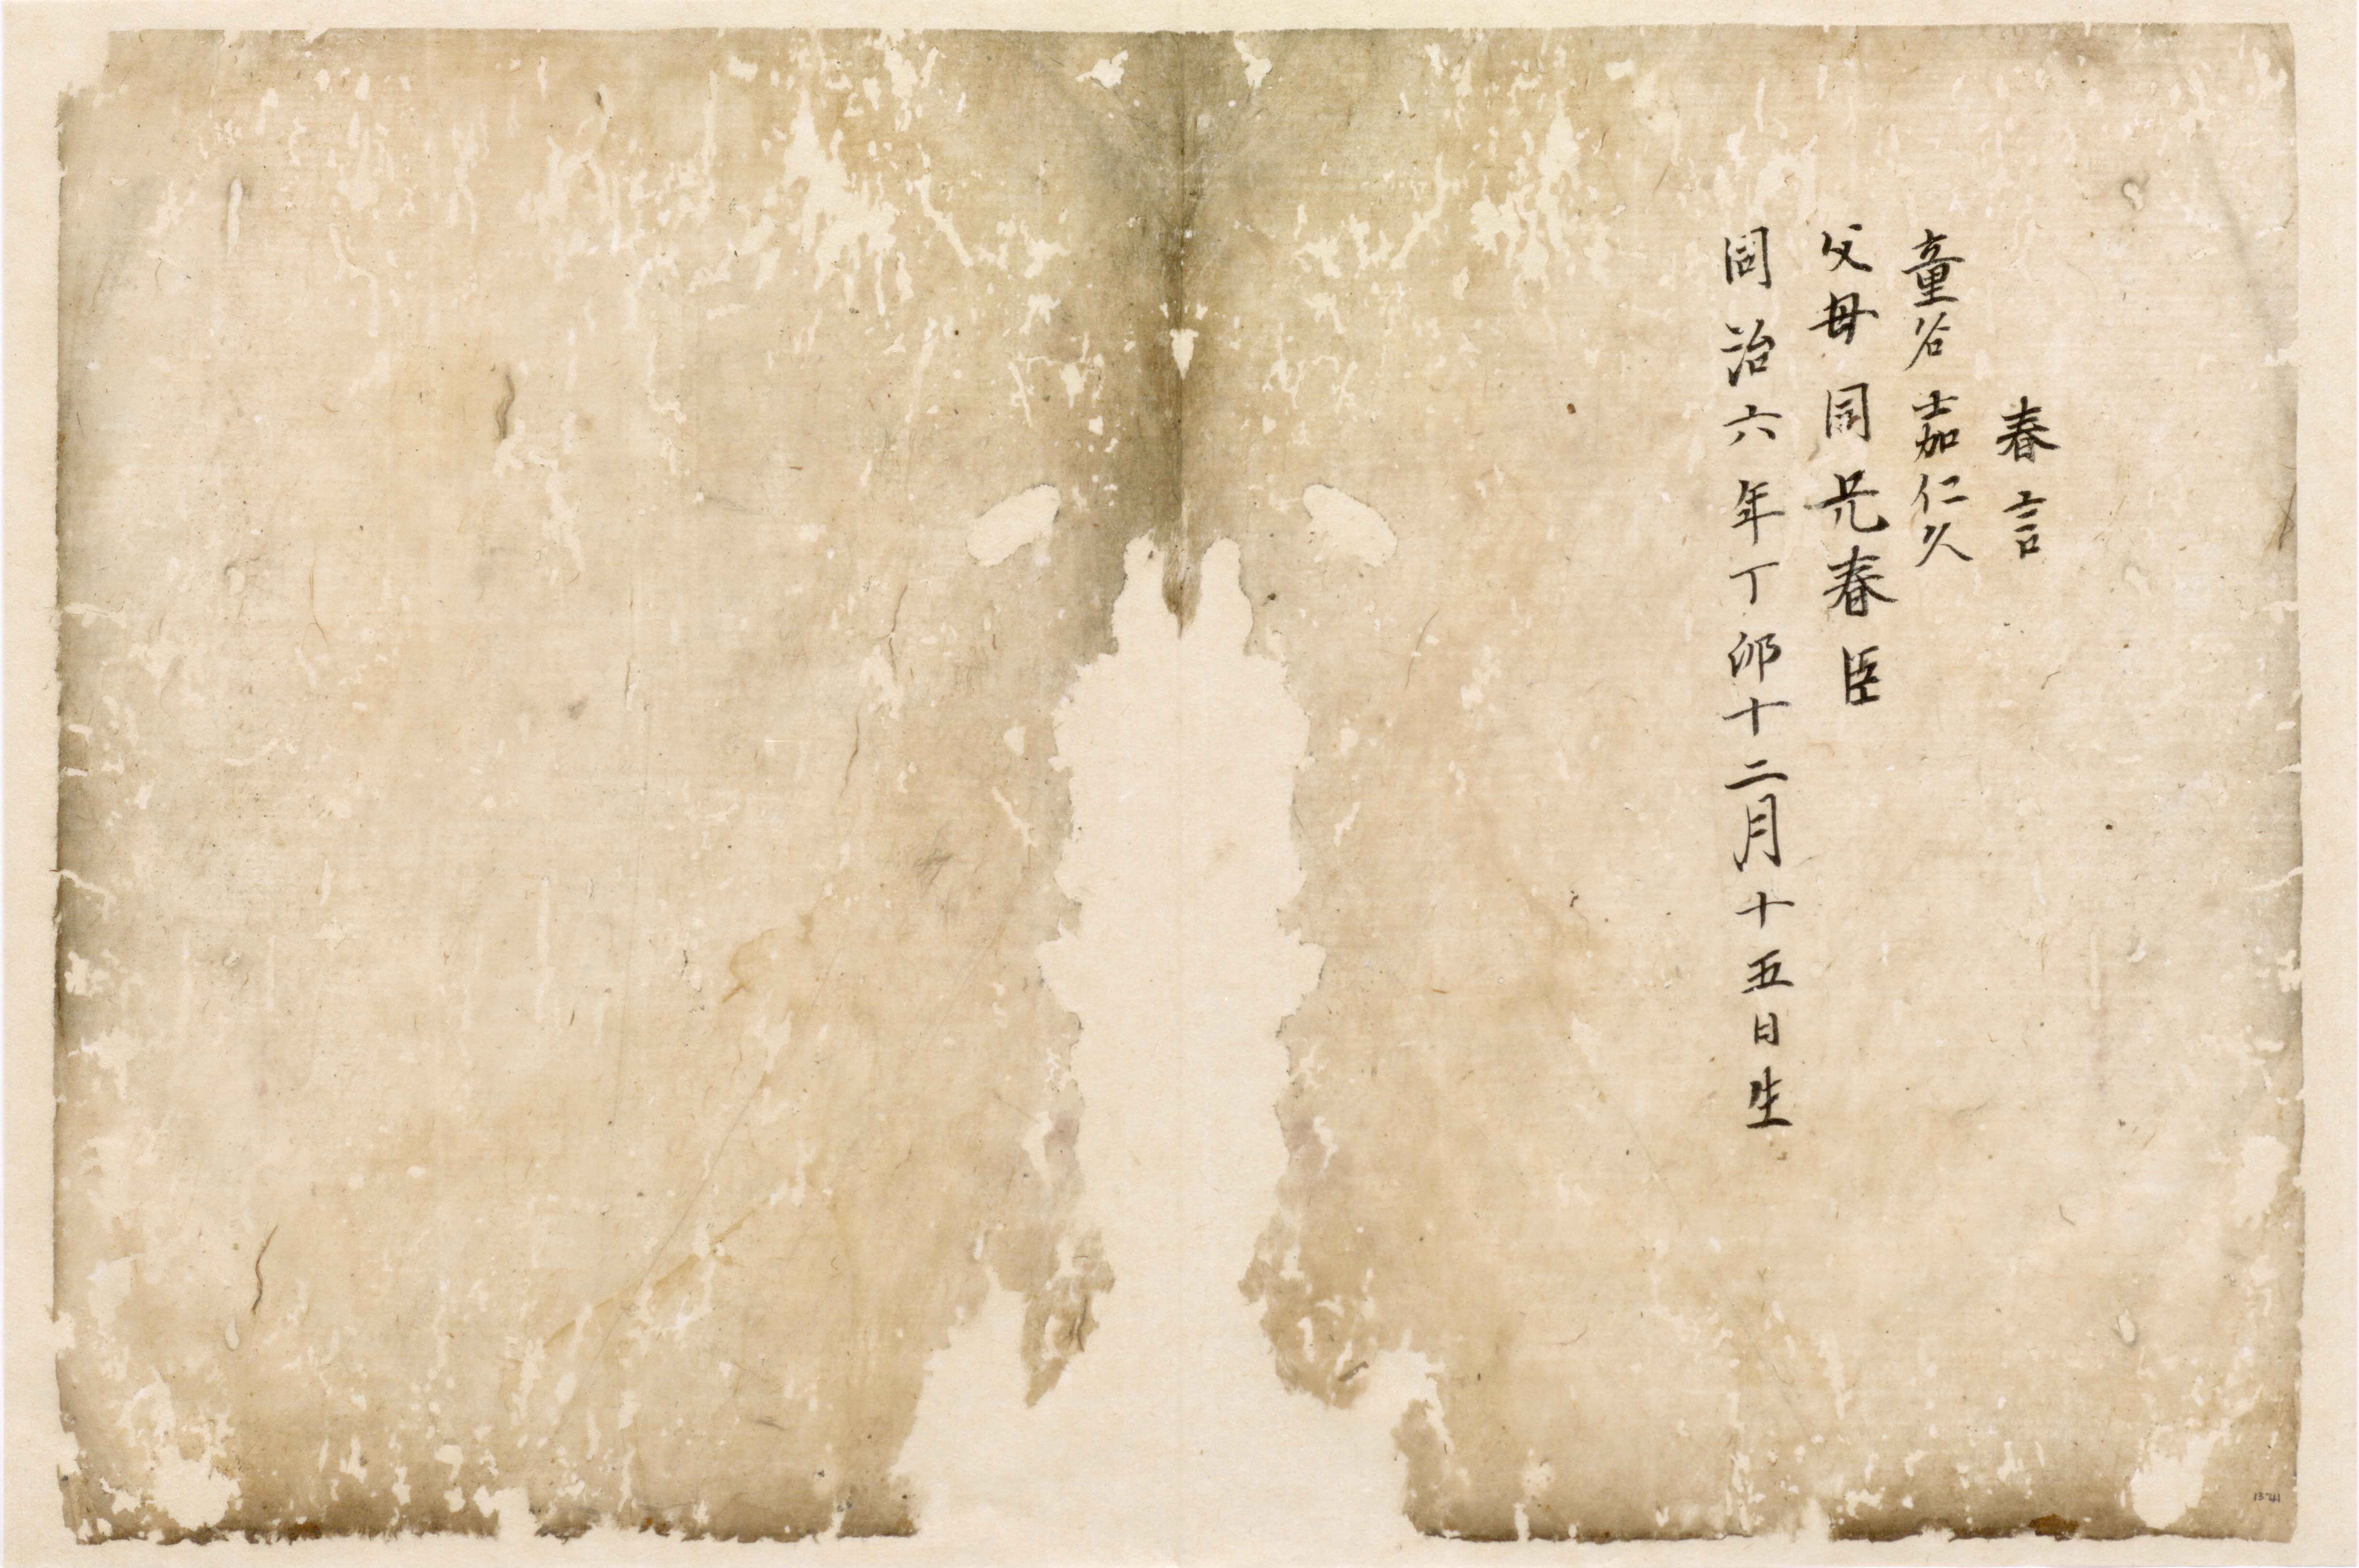 春言
童名嘉仁久
父母同兄春臣
同治六年丁卯十二月十五日生
13-41